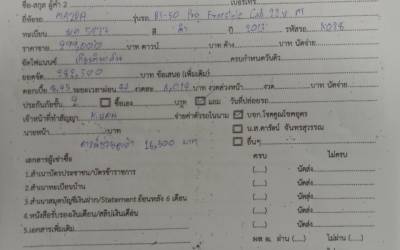 ชื่อ-สกุล ผู้ค้ำ 2 เบอร์โทร
ยี่ห้อรถ MAZDA รุ่นรถ BT-50 Pro Freestyle Cab 2.2 V MT
ทะเบียน 5877 สี ดำ ปี 2013 รหัสรถ K088
ราคาขาย บาท ดาวน์ บาท ค้าง บาท นัดจ่าย
จัดไฟแนนซ์ ครบกำหนดวันที่
ยอดจัด 388,500 บาท ข้อเสนอ (เพิ่มเติม)
ดอกเบี้ย ระยะเวลาผ่อน งวดละ งวดล่วงหน้า บาท นัดจ่าย
ประกันภัยชั้น ซื้อเอง บาท แถม วันที่ปล่อยรถ
เจ้าหน้าที่ทำสัญญา จ่ายค่าตัวรถในนาม บจก.โชคคูณโชคยูคาร์
นายหน้า บาท น.ส.ดารัตน์ จันทรสุวรรณ
16,500 บาท อื่นๆ
เอกสารผู้เช่าซื้อ ครบ ไม่ครบ
1.สำเนาบัตรประชาชน/บัตรข้าราชการ (__) (__) นัดส่ง
2.สำเนาทะเบียนบ้าน (__) (__) นัดส่ง
3.สำเนาสมุดบัญชีเงินฝาก/Statement ย้อนหลัง 6 เดือน (__) (__) นัดส่ง
4.หนังสือรับรองเงินเดือน/สลิปเงินเดือน (__) (__) นัดส่ง
5.เอกสารเพิ่มเติม (__) (__) นัดส่ง
ผ่าน (__) ไม่ผ่าน (__)